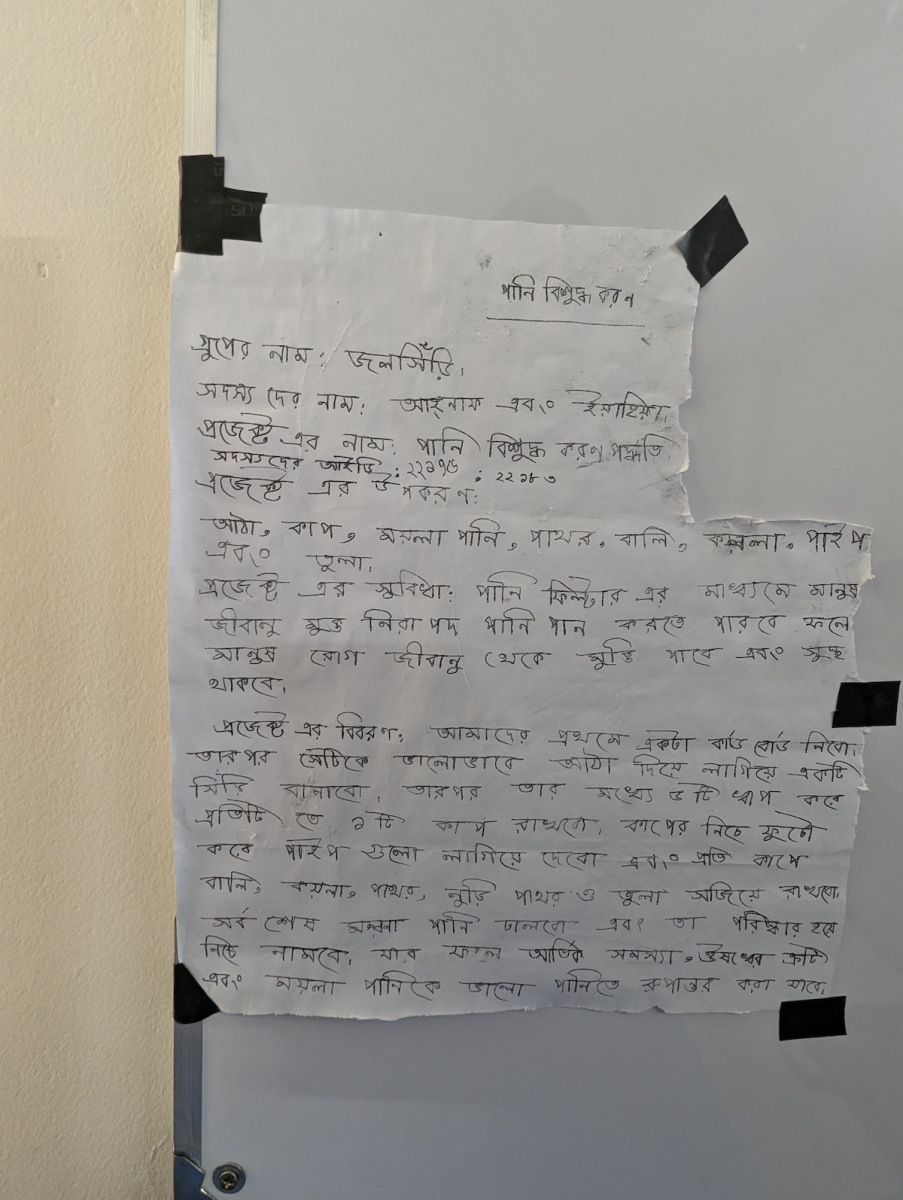 পানি বিশুদ্ধ করণ
গ্রুপের নাম: জলসিঁড়ি।
সদস্য দের নাম: আহ্নাফ এবং ইয়াহিয়া।
প্রজেক্ট এর নাম: পানি বিশুদ্ধ করণ পদ্ধতি।
সদস্যদের আইডি : ২২১৭৬ : ২২১৮৩
প্রজেক্ট এর উপকরণ:
আঠা, কাপ, ময়লা পানি, পাথর, বালি, কয়লা, পাইপ
এবং তুলা।
প্রজেক্ট এর সুবিধা: পানি ফিল্টার এর মাধ্যমে মানুষ
জীবানু মুক্ত নিরাপদ পানি পান করতে পারবে ফলে
মানুষ রোগ জীবানু থেকে মুক্তি পাবে এবং সুস্থ
থাকবে।
প্রজেক্ট এর বিবরণ: আমাদের প্রথমে একটা কার্ড বোর্ড নিবো।
তারপর সেটিকে ভালোভাবে আঠা দিয়ে লাগিয়ে একটি
সিঁরি বানাবো, তারপর তার মধ্যে ৩ টি ধাপ করে
প্রতিটি তে ১ টি কাপ রাখবো, কাপের নিচে ফুটো
করে পাইপ গুলো লাগিয়ে দেবো এবং প্রতি কাপে
বালি, কয়লা, পাথর, নুড়ি পাথর ও তুলা সাজিয়ে রাখবো,
সর্ব শেষ ময়লা পানি ঢালবো এবং তা পরিষ্কার হয়ে
নিচে নামবে, যার ফলে আর্থিক সমস্যা, ঔষধের ক্রটি
এবং ময়লা পানিকে ভালো পানিতে রূপান্তর করা যাবে।